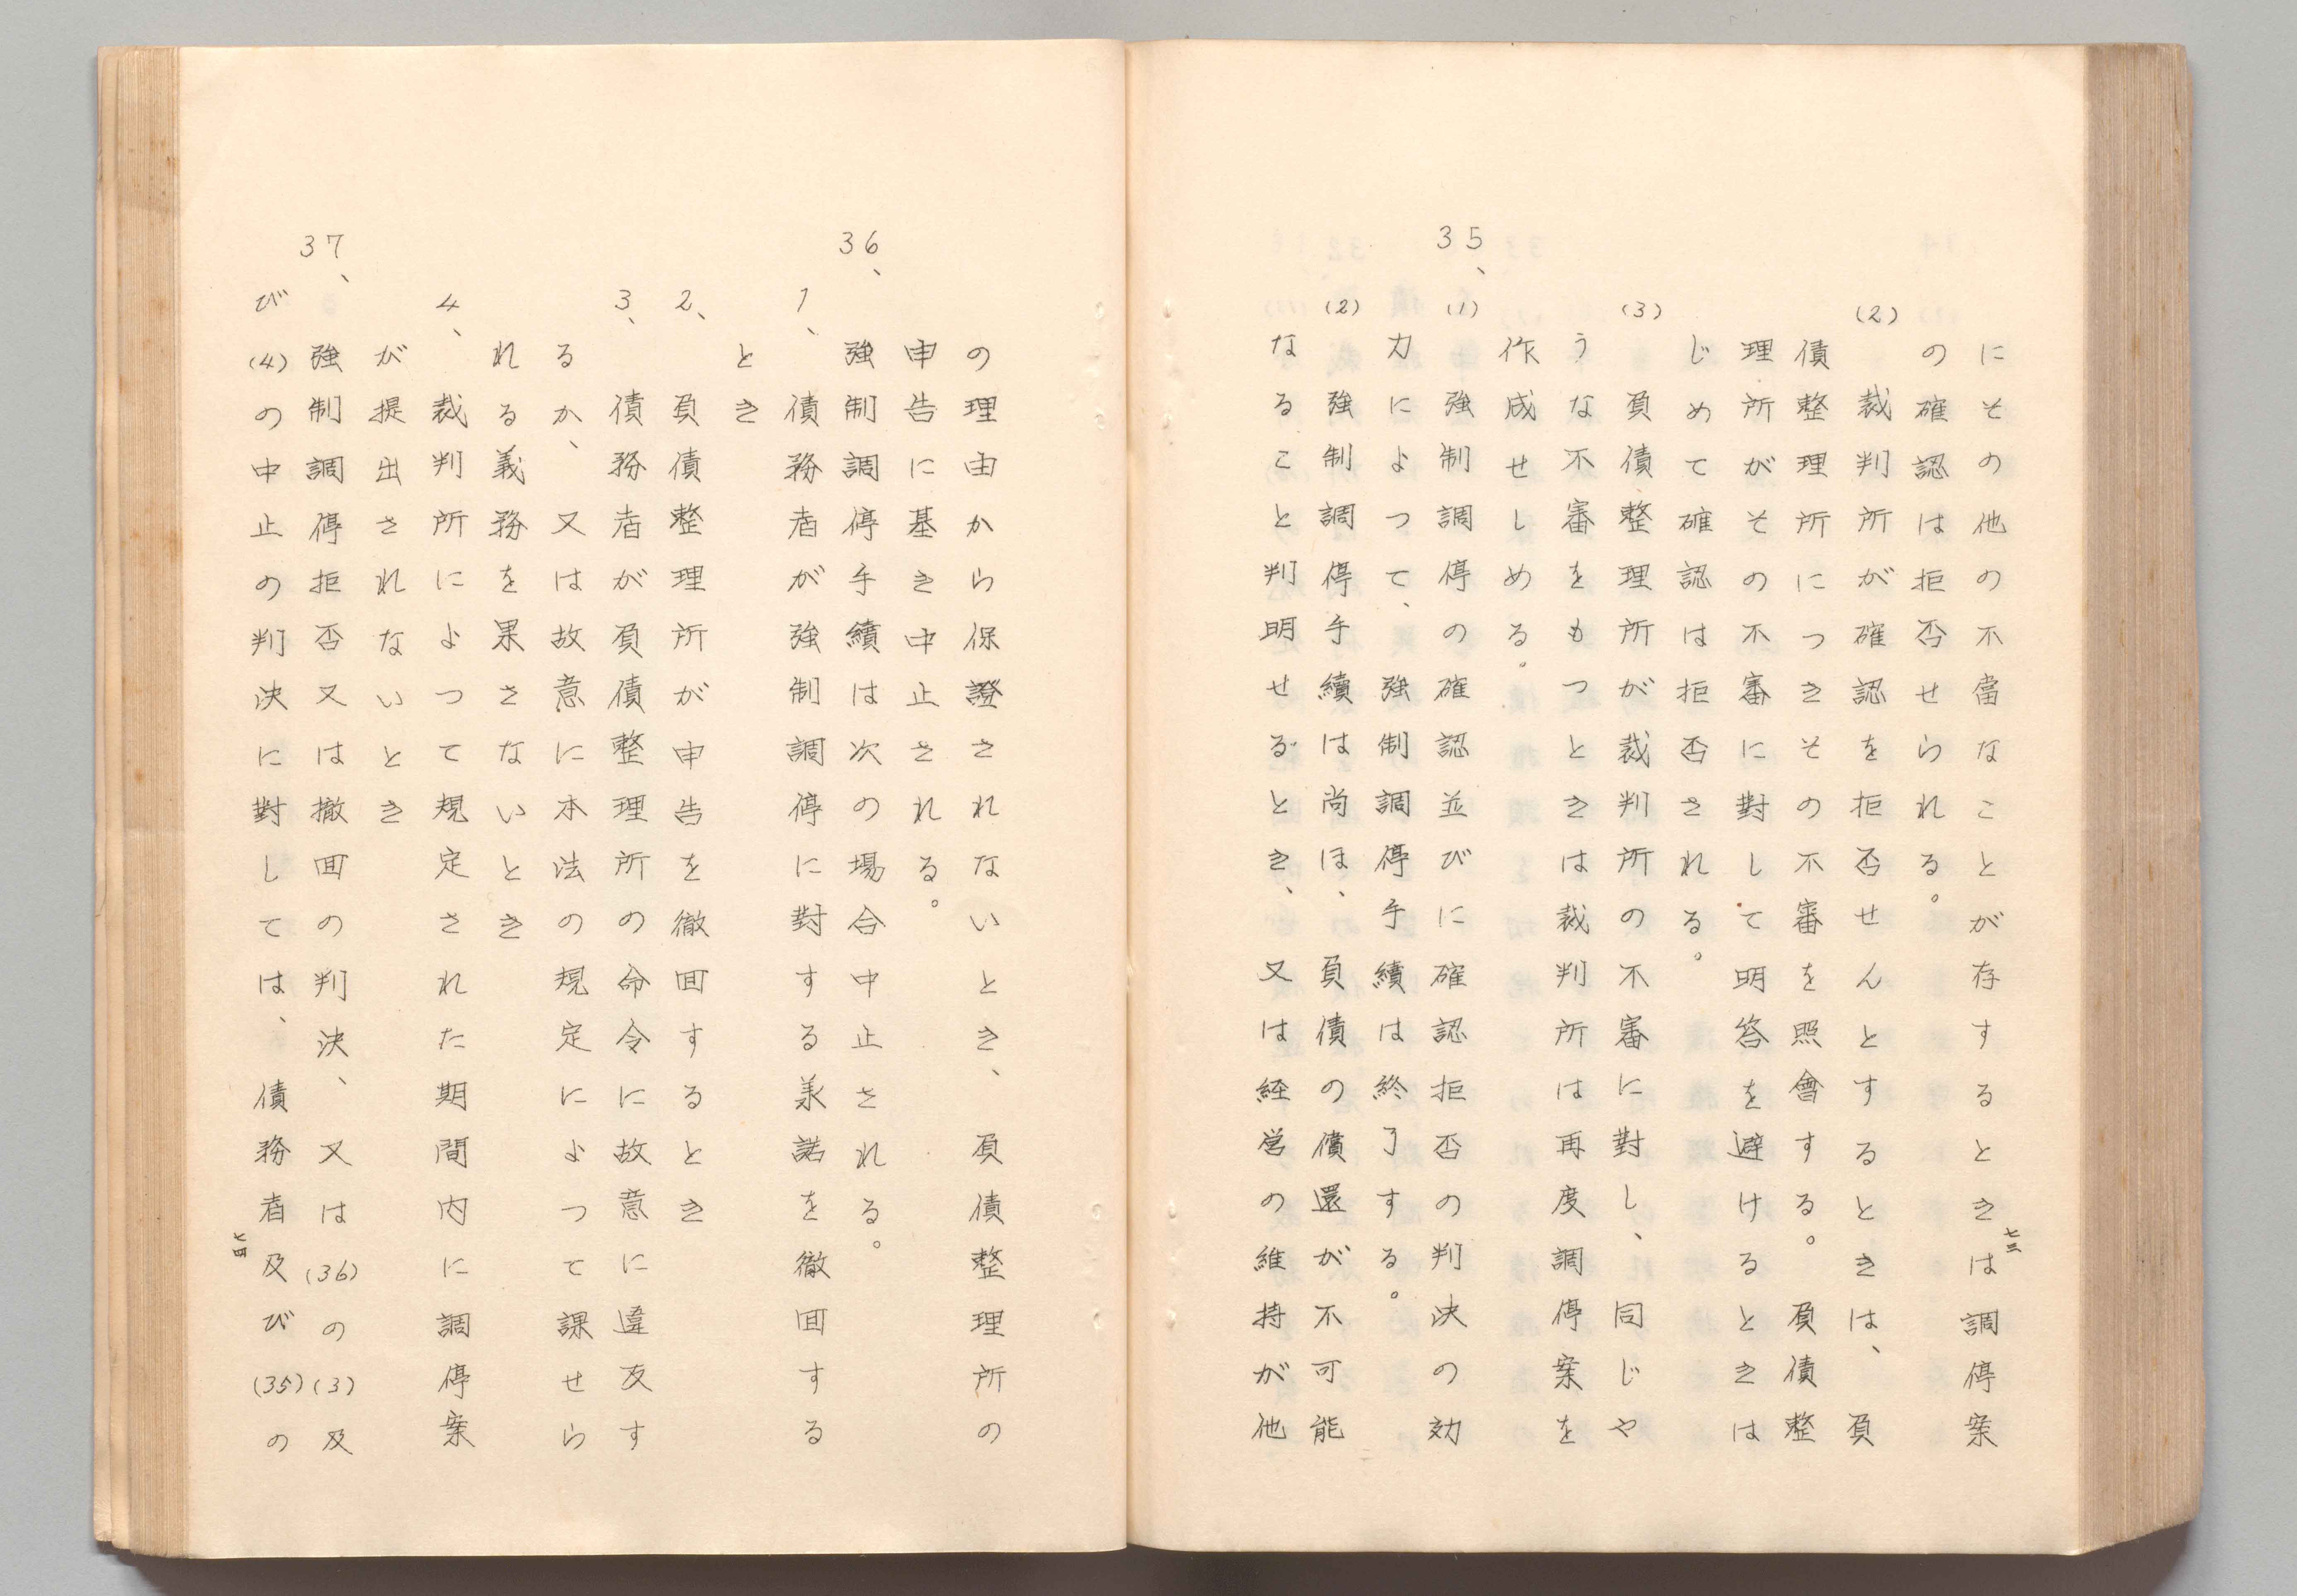 にその他の不當なことが存するときは調停案
の確認は拒否せられる。
(2) 裁判所が確認を拒否せんとするときは、負
債整理所につきその不審を照會する。負債整
理所がその不審に對して明答を避けるときは
じめて確認は拒否される。
(3) 負債整理所が裁判所の不審に對し、同じや
うな不審をもつときは裁判所は再度調停案を
作成せしめる。
35、(1) 強制調停の確認並びに確認拒否の判決の効
力によつて、強制調停手續は終了する。
(2) 強制調停手續は尚ほ、負債の償還が不可能
なること判明せるとき、又は経営の維持が他
七三
の理由から保證されないとき、負債整理所の
申告に基き中止される。
36、強制調停手續は次の場合中止される。
1、債務者が強制調停に對する承諾を徹回する
とき
2、負債整理所が申告を徹回するとき
3、債務者が負債整理所の命令に故意に違反す
るか、又は故意に本法の規定によつて課せら
れる義務を果さないとき
4、裁判所によつて規定された期間内に調停案
が提出されないとき
37、強制調停拒否又は撤回の判決、又は(36)の(3)及
び(4)の中止の判決に對しては、債務者及び(35)の
七四